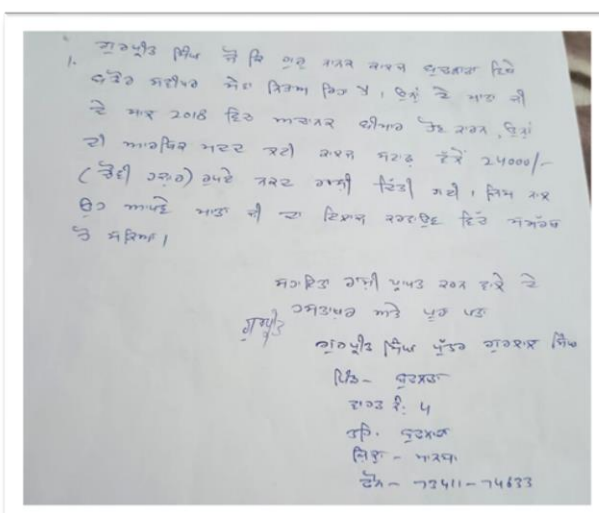 1. ਗੁਰਪ੍ਰੀਤ ਸਿੰਘ ਜੋ ਕਿ ਗੁਰੂ ਨਾਨਕ ਕਾਲਜ ਬੁਢਲਾਡਾ ਵਿਖੇ
ਬਤੌਰ ਸੇਵਾ ਨਿਭਾਅ ਰਿਹਾ ਹੈ। ਉਨ੍ਹਾਂ ਦੇ ਮਾਤਾ ਜੀ
ਦੇ ਸਾਲ 2018 ਵਿੱਚ ਅਚਾਨਕ ਬੀਮਾਰ ਹੋਣ ਕਾਰਨ, ਉਨ੍ਹਾਂ
ਦੀ ਆਰਥਿਕ ਮਦਦ ਲਈ ਕਾਲਜ ਸਟਾਫ਼ ਵੱਲੋਂ 24000/-
(ਚੌਵੀ ਹਜ਼ਾਰ) ਰੁਪਏ ਨਕਦ ਰਾਸ਼ੀ ਦਿੱਤੀ ਗਈ। ਜਿਸ ਨਾਲ
ਉਹ ਆਪਣੇ ਮਾਤਾ ਜੀ ਦਾ ਇਲਾਜ ਕਰਵਾਉਣ ਵਿੱਚ ਸਮਰੱਥ
ਹੋ ਸਕਿਆ।
ਸਹਾਇਤਾ ਰਾਸ਼ੀ ਪ੍ਰਾਪਤ ਕਰਨ ਵਾਲੇ ਦੇ
ਹਸਤਾਖਰ ਅਤੇ ਪੂਰਾ ਪਤਾ
ਗੁਰਪ੍ਰੀਤ
ਗੁਰਪ੍ਰੀਤ ਸਿੰਘ ਪੁੱਤਰ ਗੁਰਲਾਲ ਸਿੰਘ
ਪਿੰਡ - ਬੁਢਲਾਡਾ
ਵਾਰਡ ਨੰ: 4
ਤਹਿ. ਬੁਢਲਾਡਾ
ਜ਼ਿਲ੍ਹਾ - ਮਾਨਸਾ
ਫੋਨ - 73411-74633